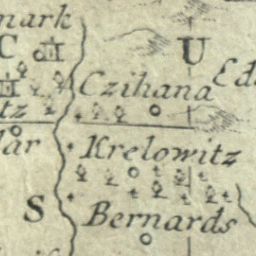 mark
C
U
Czihana
Ed
tz
lar
Krelowitz
S
Bernards